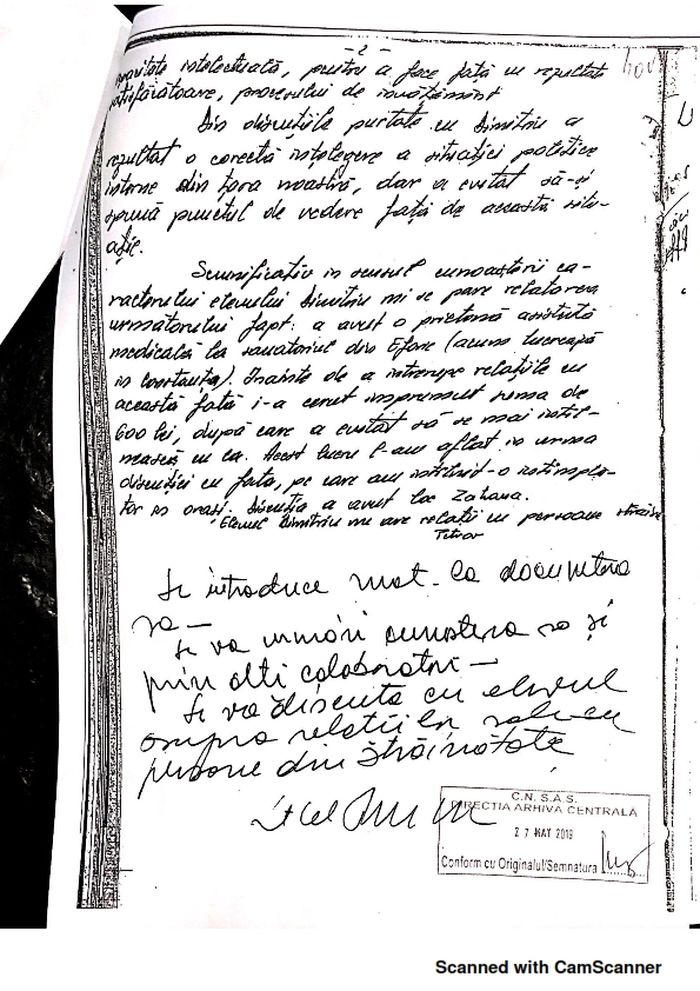 - 2 -
intelectuală, pentru a face față cu rezultate
satisfăcătoare, procesului de învățămînt
Din discuțiile purtate cu Dimitriu a
rezultat o corectă înțelegere a situației politice
interne din țara noastră, dar a evitat să-și
spună punctul de vedere față de această situ-
ație.
Semnificativ în sensul cunoașterii ca-
racterului elevului Dimitriu mi se pare relatarea
următorului fapt: a avut o prietenă asistentă
medicală la sanatoriul din Eforie (acum lucrează
în Constanța). Înainte de a întrerupe relațiile cu
această fată i-a cerut împrumut suma de
600 lei, după care a evitat să se mai întîl-
nească cu ea. Acest lucru l-am aflat în urma
discuției cu fata, pe care am întîlnit-o întîmplă-
tor în oraș. Discuția a avut loc
Elevul Dimitriu nu are relații cu persoane străine
Se introduce mat. la documentarea
sa —
Se va urmări cunoașterea sa și
prin alți colaboratori —
Se va discuta cu elevul
asupra relațiilor sale cu
persoane din străinătate
C.N.S.A.S.
DIRECTIA ARHIVA CENTRALĂ
27 MAY 2019
Conform cu Originalul/Semnatura
Scanned with CamScanner